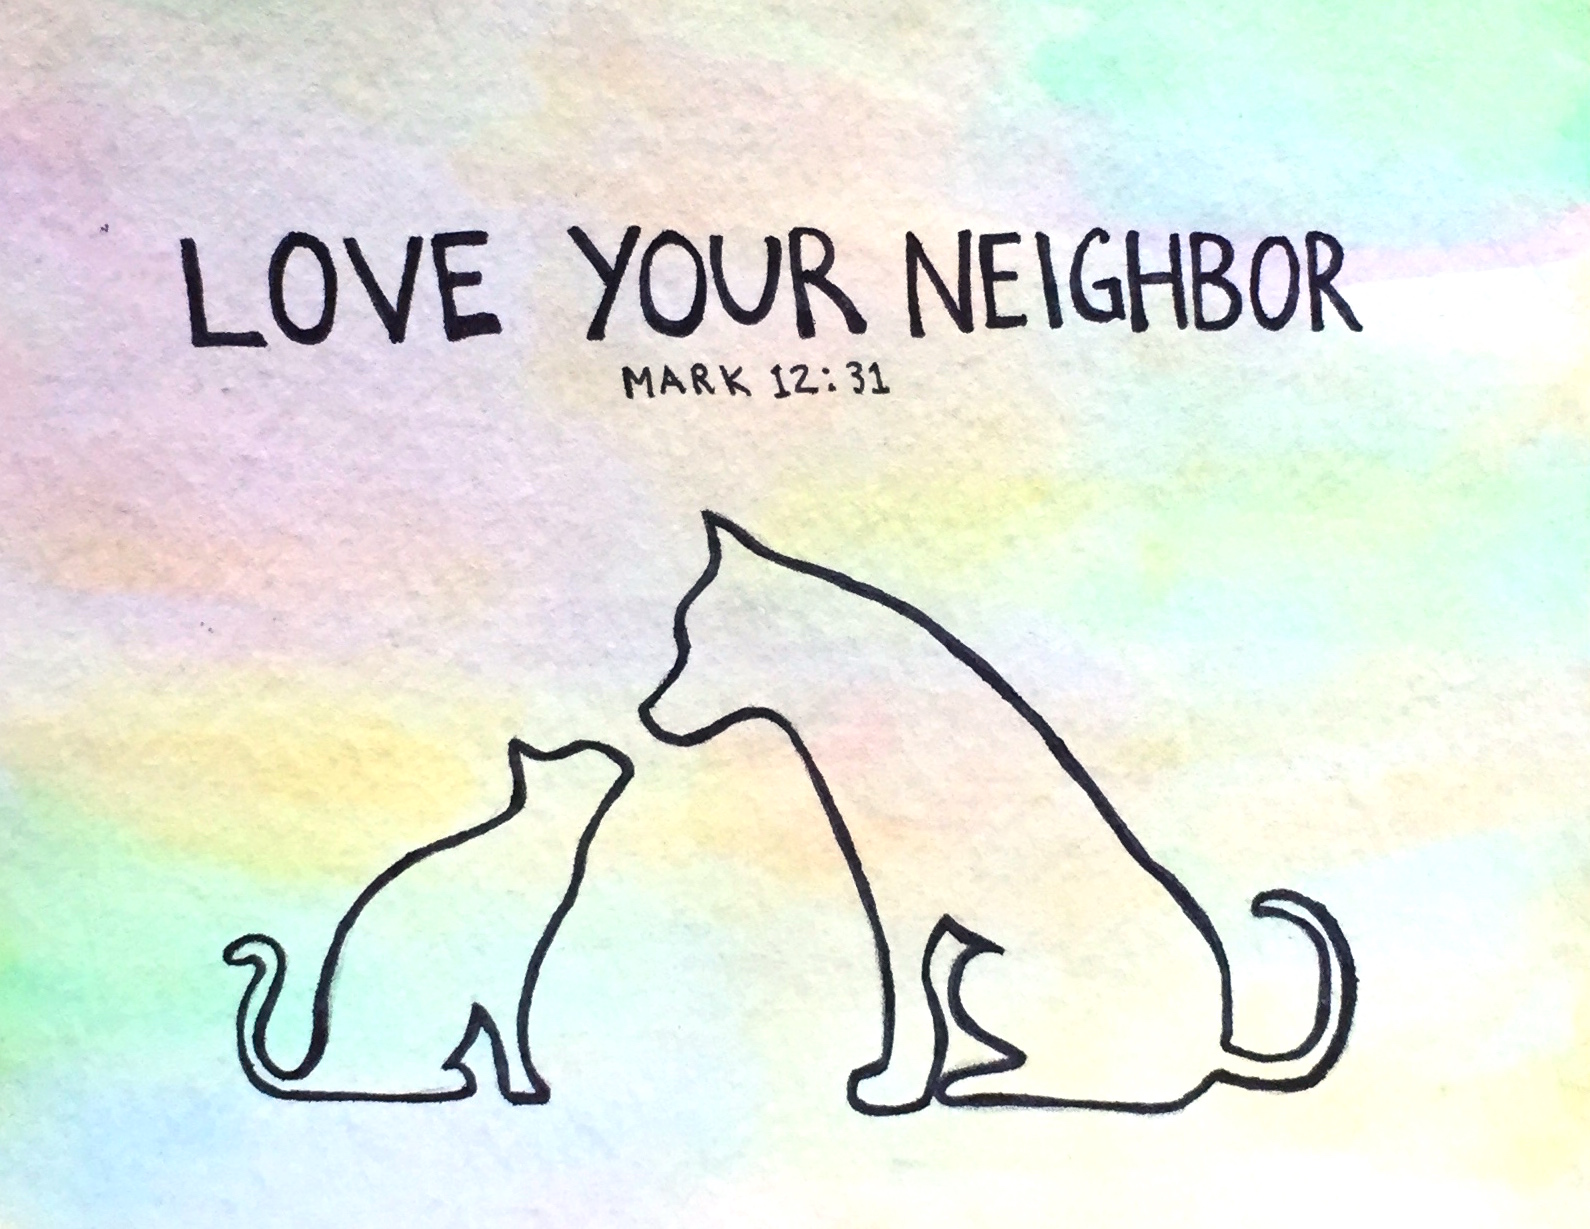 LOVE YOUR NEIGHBOR
MARK 12:31